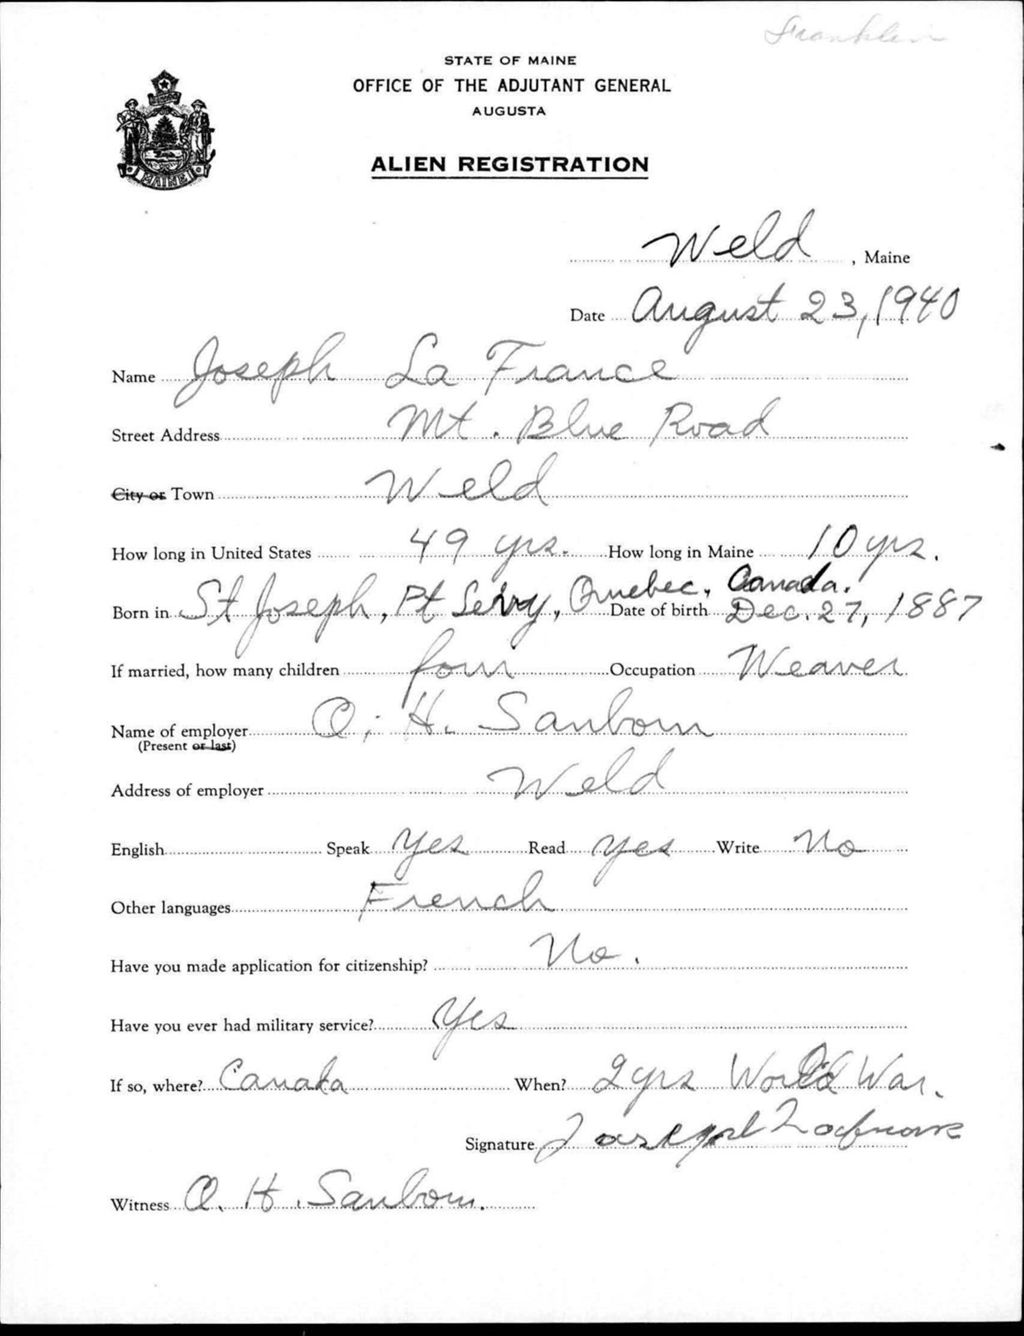 Franklin
STATE OF MAINE
OFFICE OF THE ADJUTANT GENERAL
AUGUSTA
ALIEN REGISTRATION
MAINE
Weld, Maine
Date August 23, 1940
Name Joseph La France
Street Address Mt. Blue Road
City or Town Weld
How long in United States 49 yrs. How long in Maine 10 yrs.
Born in St Joseph, Pt Quebec, Canada. Date of birth Dec. 27, 1887
If married, how many children four Occupation Weaver
Name of employer O. H. Sanborn
(Present or last)
Address of employer Weld
English Speak Yes Read Yes Write No
Other languages French
Have you made application for citizenship? No.
Have you ever had military service? Yes
If so, where? Canada When? 2 yrs World War.
Signature Joseph Lafrance
Witness O. H. Sanborn.